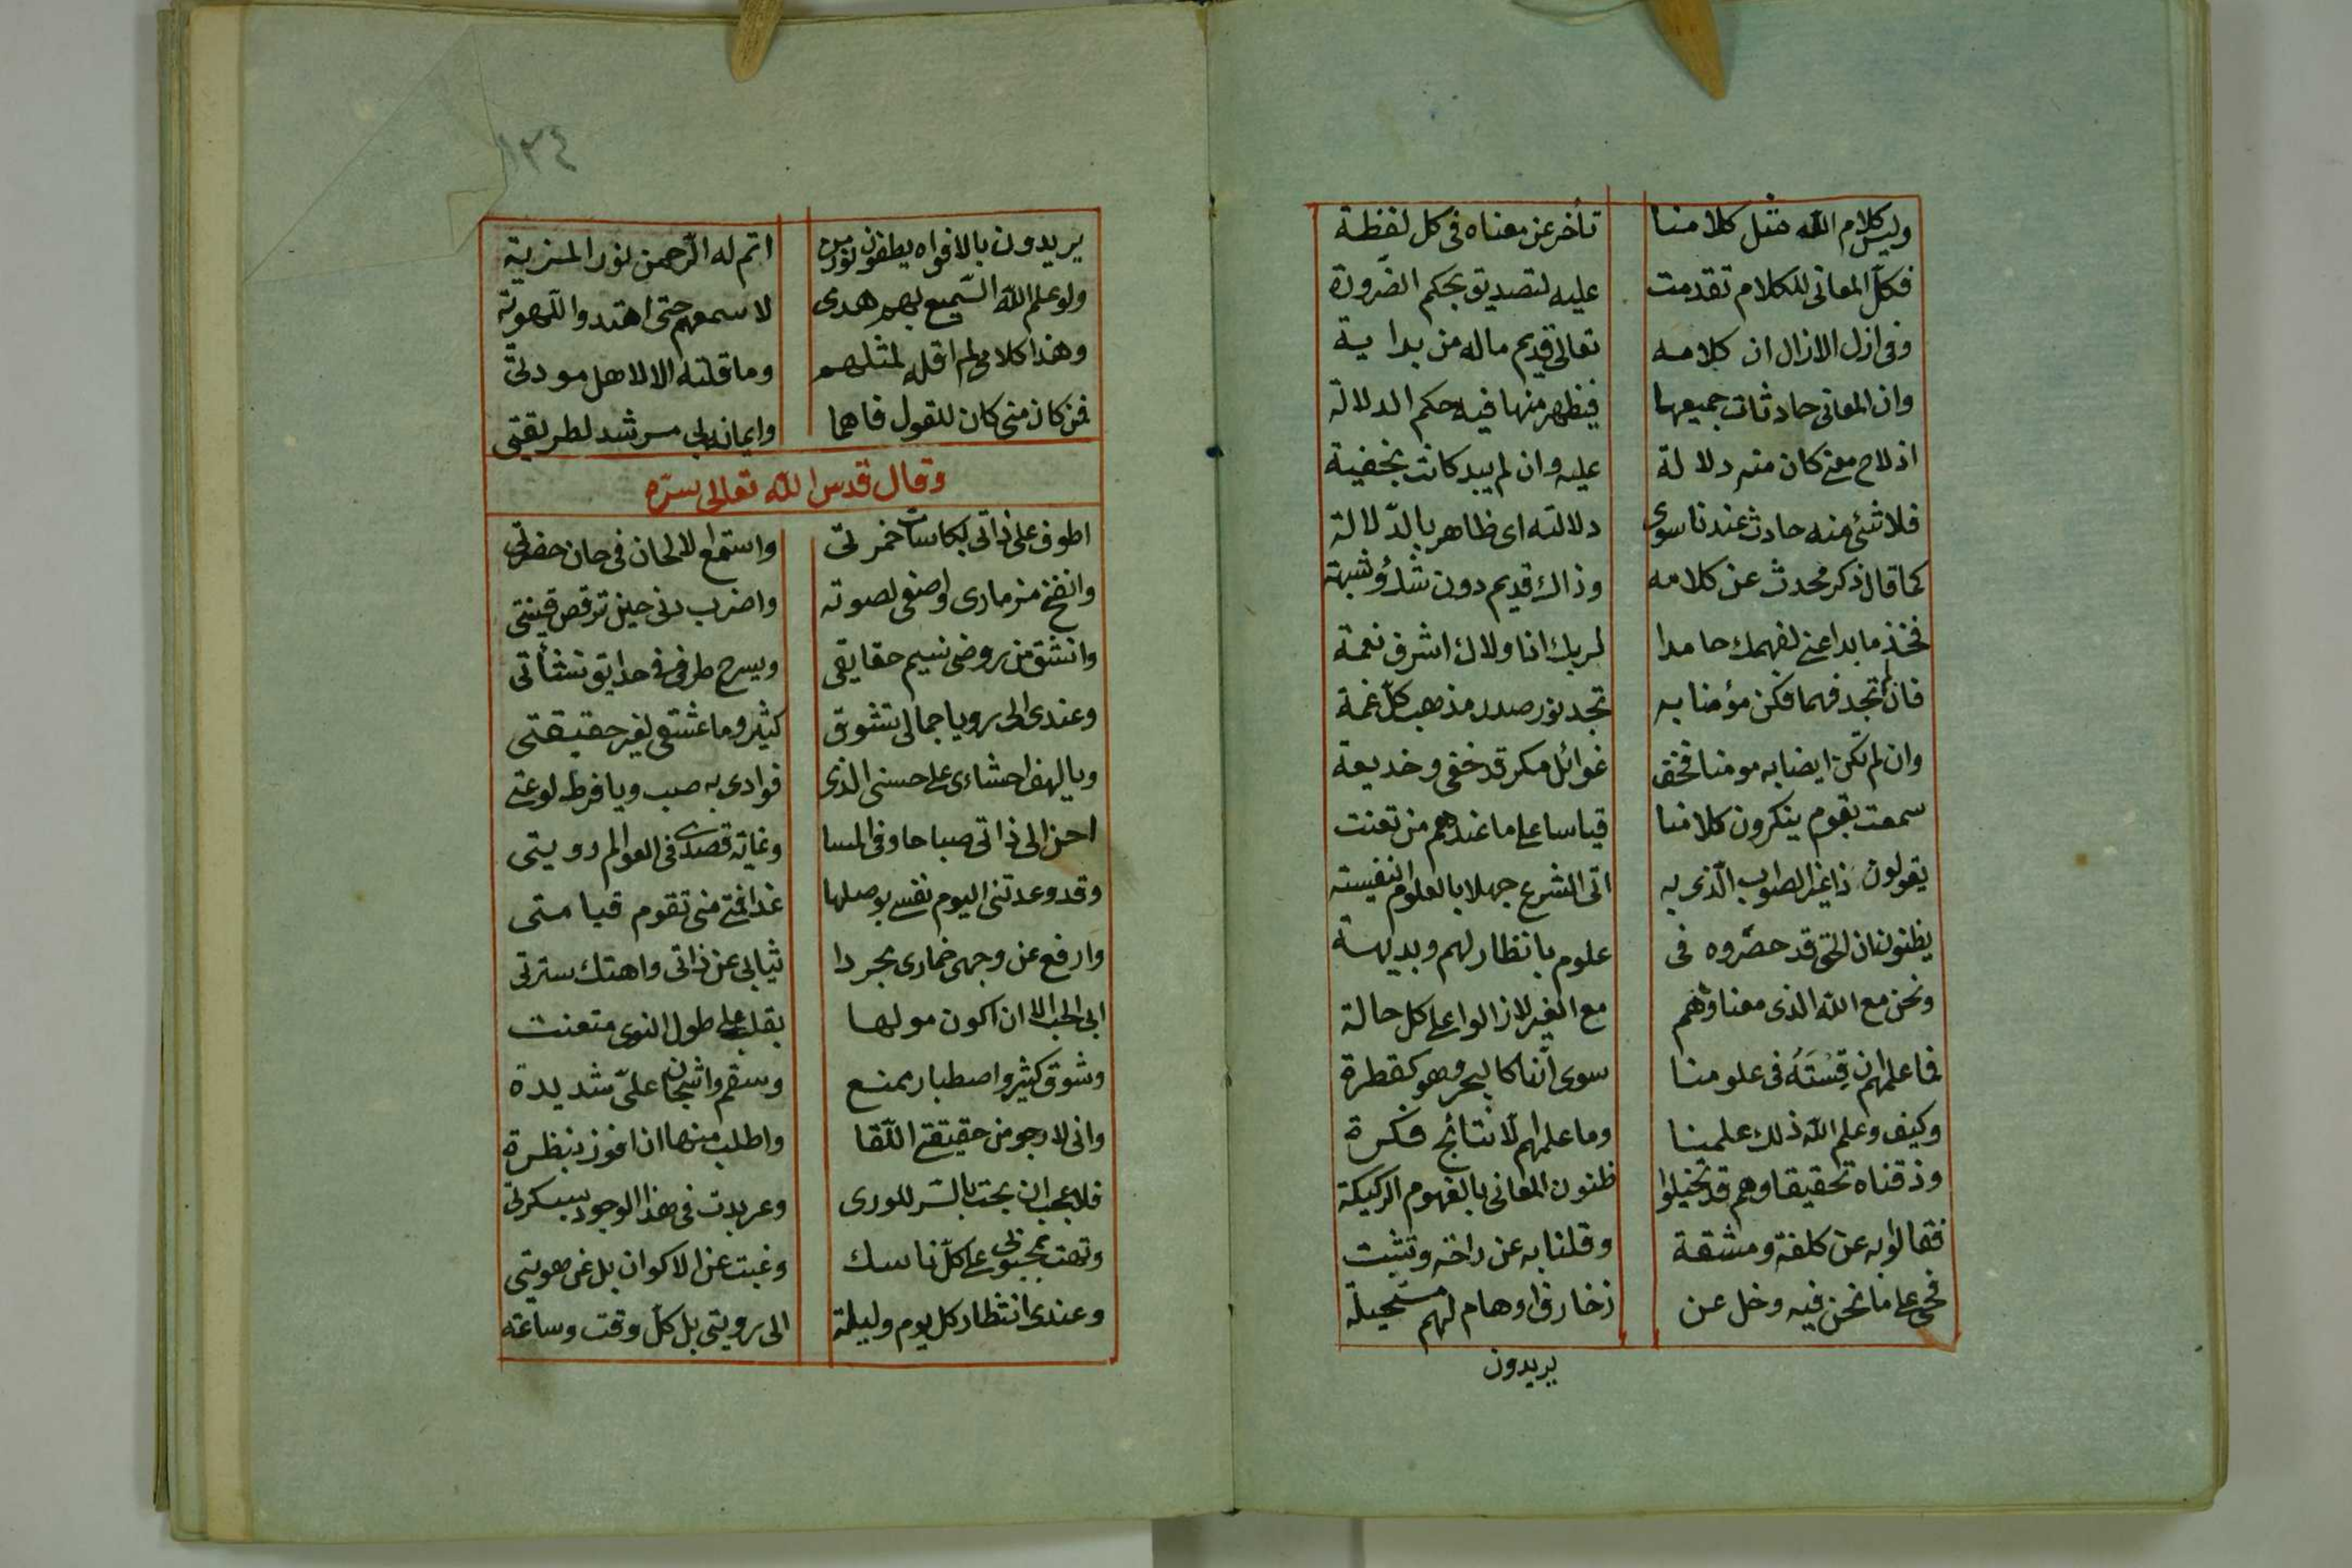 وليس كلام الله مثل كلامنا تأخر عن معناه فى كل لفظة
فكل المعانى للكلام تقدمت عليه لتصديق بحكم الضرورة
وفى ازل الازال ان كلامه تعالى قديم ماله من بداية
وان المعانى حادثات جميعها فيظهر منها فيه حكم الدلالة
اذ لاح معنى كان منه دلالة عليه وان لم يبد كانت بخفية
فلا شئ منه حادث عندنا سوى دلالته اى ظاهر بالدلالة
كما قال ذكر محدث عن كلامه وذاك قديم دون شك وشبهة
فخذ ما بدا عنى لفهمك حامدا لربك انا ولاك اشرف نعمة
فان لم تجد فهما فكن مؤمنا به تجد نور صدر مذهب كل غمة
وان لم تكن ايضا به مومنا فخف غوائل مكر قد خفى وخديعة
سمعت بقوم ينكرون كلامنا قياسا على ما عندهم من تعنت
يقولون ذا غير الصواب الذى به اتى الشرع جهلا بالعلوم النفيسة
يظنون ان الحق قد حصروه فى علوم بانظار لهم وبديهة
ونحن مع الله الذى معنا وهم مع الغير لا زالوا على كل حالة
فما علمهم ان قسته فى علومنا سوى اننا كالبحر وهو كقطرة
وكيف وعلم الله ذلك علمنا وما علمهم الا نتائج فكرة
وذقناه تحقيقا وهم قد تخيلوا ظنون المعانى بالفهوم الركيكة
فقالوا به عن كلفة ومشقة وقلنا به عن راحة وتثبت
فحى على ما نحن فيه وخل عن زخارف اوهام لهم مستحيلة
يريدون
١٢٤
يريدون بالافواه يطفون نور من اتم له الرحمن نور المزية
ولو علم الله السميع بهم هدى لاسمعهم حتى اهتدوا للهوية
وهذا كلامى لم اقله لمثلهم وما قلته الا لاهل مودتى
فمن كان منى كان للقول فاهما وايمانه لى مرشد لطريقتى
وقال قدس الله تعالى سره
اطوف على ذاتى بكاسات خمرتى واستمع الالحان فى حان حضرتى
وانفخ مزمارى واصغى لصوته واضرب دفى حين ترقص قينتى
وانشق من روضى نسيم حقايقى ويسرح طرفى فى حدايق نشأتى
وعندى الى رويا جمالى تشوق كثير وما عشقى لغير حقيقتى
ويا لهف احشاءى على حسنى الذى فوادى به صب ويا فرط لوعتى
احن الى ذاتى صباحا وفى المسا وغاية قصدى فى العوالم رويتى
وقد وعدتنى اليوم نفسى بوصلها غدا فمتى منى تقوم قيامتى
وارفع عن وجهى خمارى مجردا ثيابى عن ذاتى واهتك سترتى
ابى الحب الا ان اكون مولها بقلب على طول النوى متعنت
وشوق كثير واصطبار ممنع وسقم واشجان على شديدة
وانى لارجو من حقيقتى اللقا واطلب منها ان افوز بنظرة
فلا عجب ان بحت بالسر للورى وعربدت فى هذا الوجود بسكرتى
وتهت بمحبوبى على كل ناسك وغبت عن الاكوان بل عن هويتى
وعندى انتظار كل يوم وليلة الى رويتى بل كل وقت وساعة